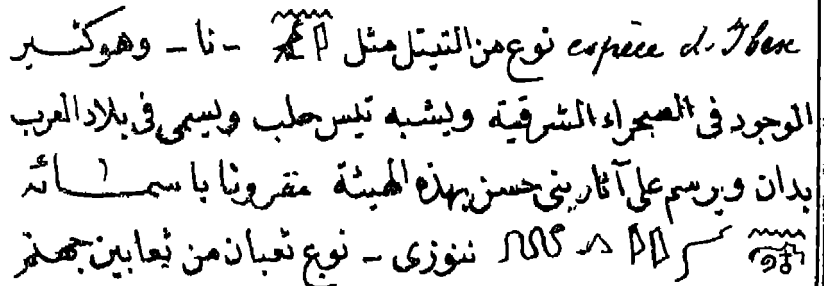 espèce d'Ibex نوع من التيتل مثل - نا - وهو كثير
الوجود في الصحراء الشرقية ويشبه تيس حلب ويسمى في بلاد العرب
بدان ويرسم على آثار بني حسن بهذه الهيئة مقرونا باسمائه
ننوزى - نوع ثعبان من ثعابين جهنم